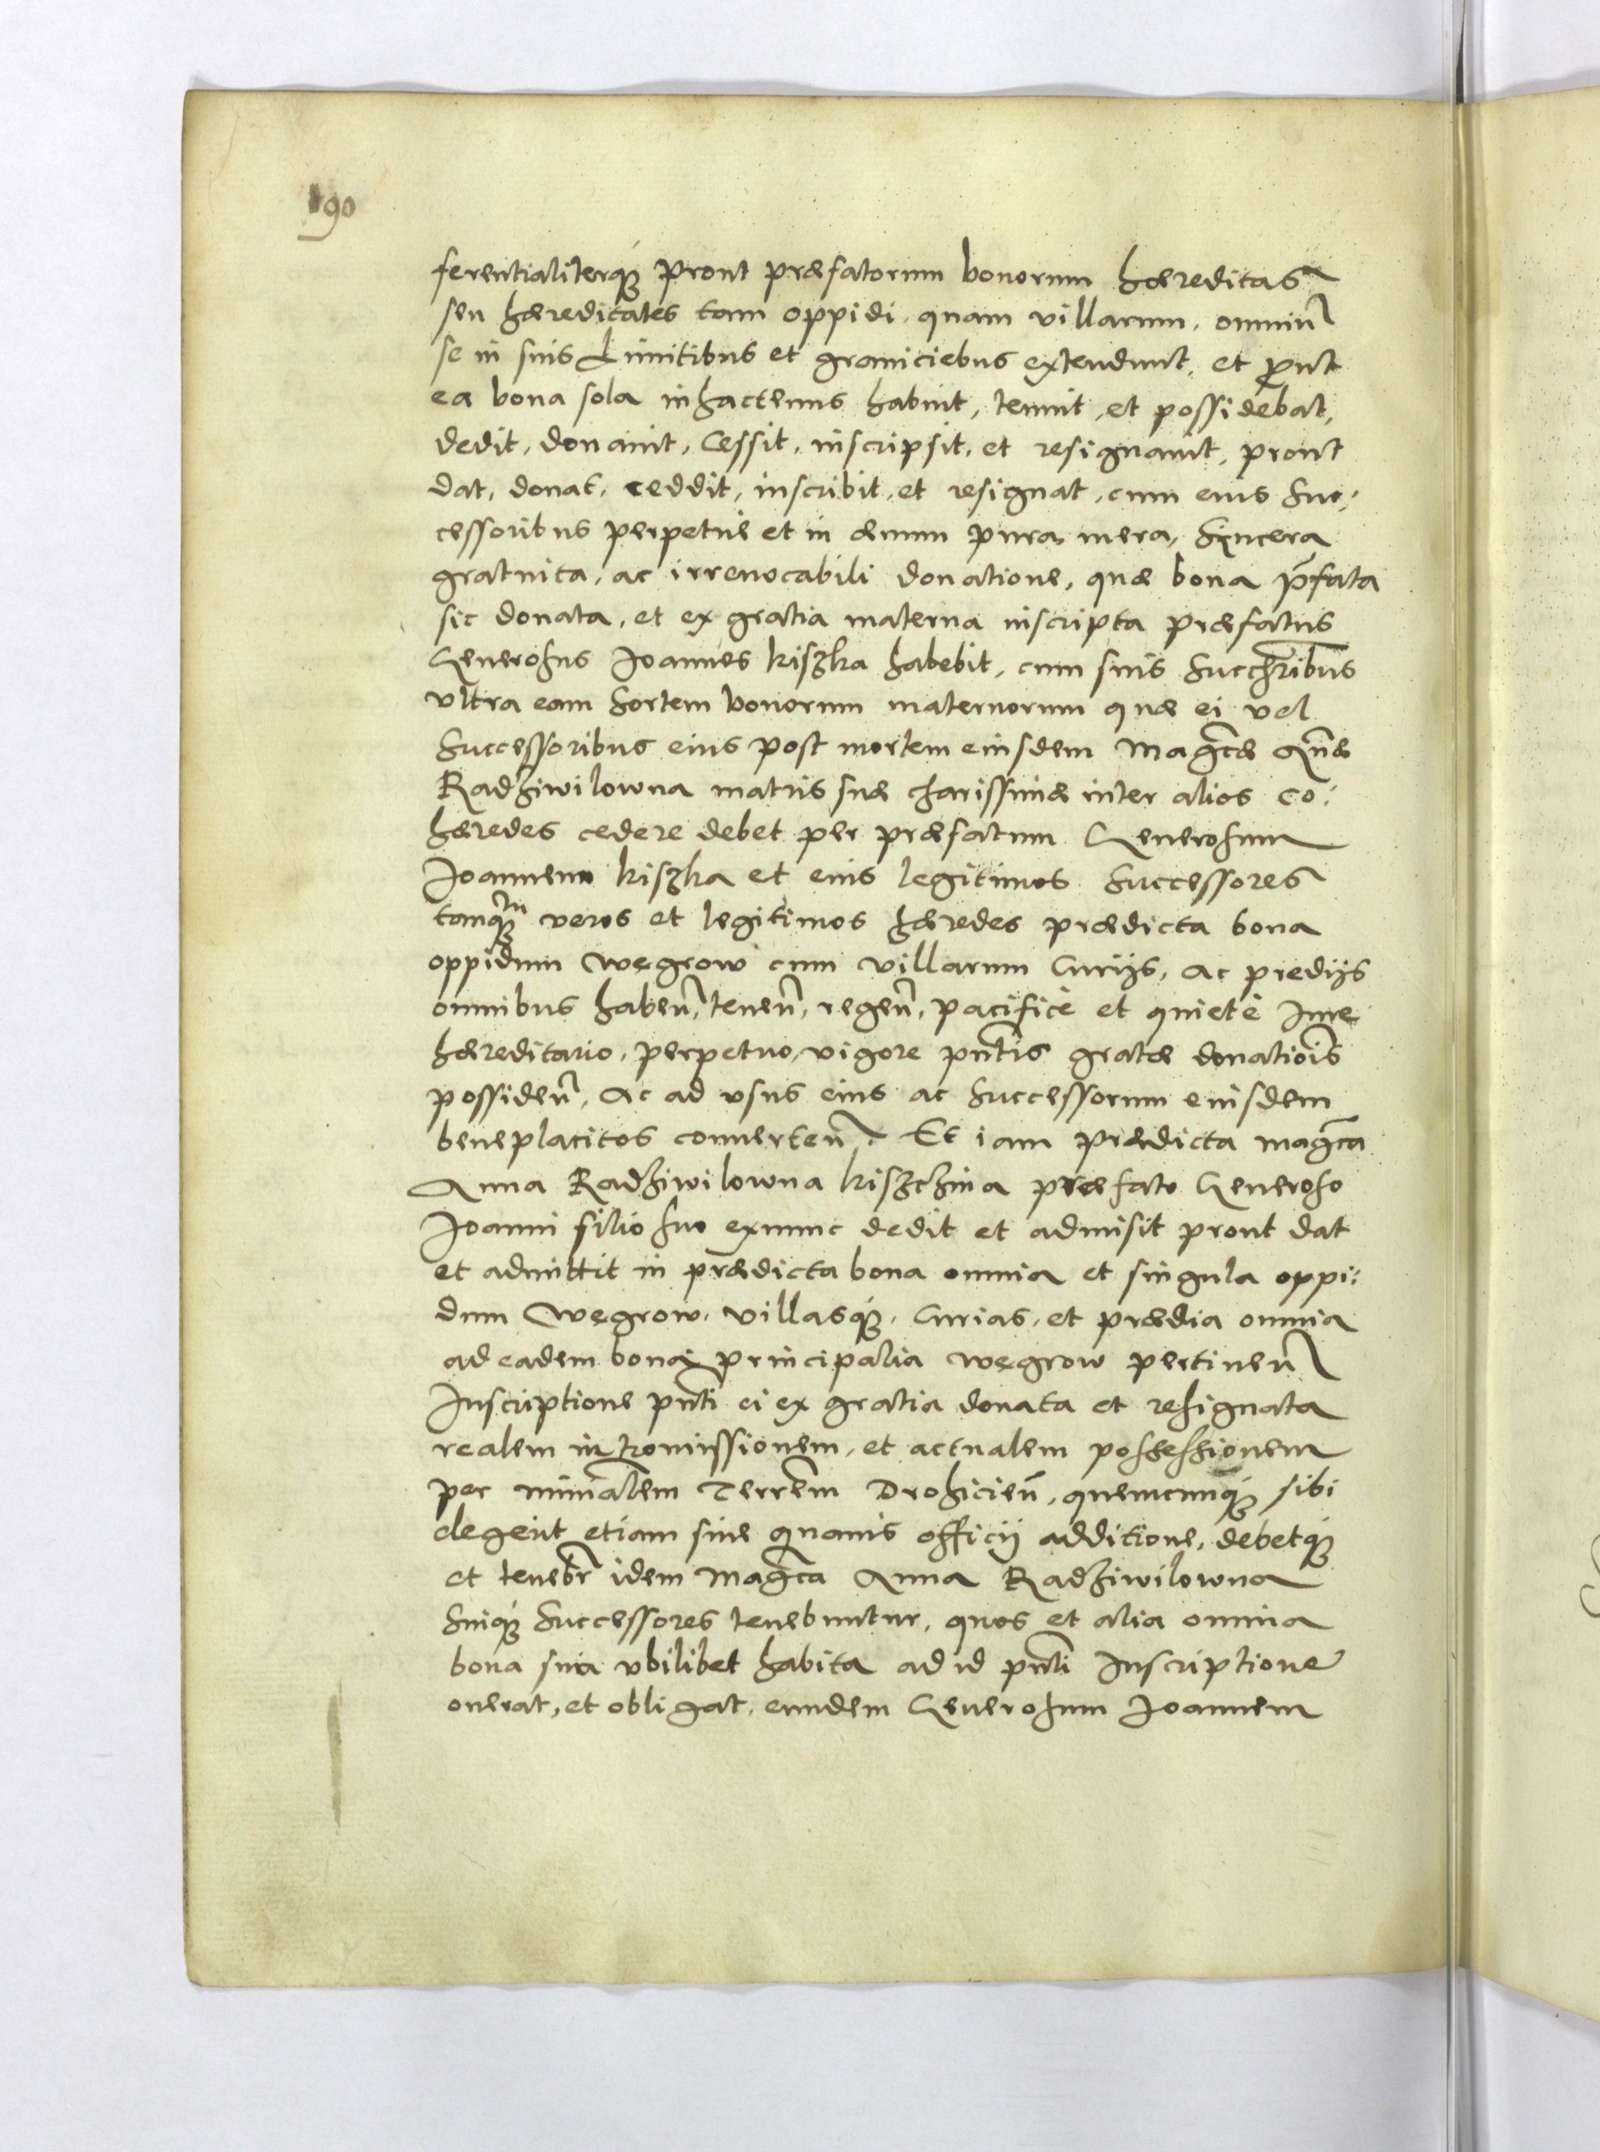 190
ferentialiterqꝫ prout præfatorum bonorum hæreditas
seu hæreditates tam oppidi, quam villarum, omniu͂
se in suis Limitibus et graniciebus extendunt, et ꝓut
ea bona sola in hactenus habuit, tenuit, et possidebat,
dedit, donauit, Cessit, inscripsit, et resignauit, prout
dat, donat, ceddit, inscribit, et resignat, cum eius Suc:
cessoribus perpetue et in æuum pura, mera, Syncera
gratuita, ac irreuocabili donatione, quæ bona p͂fata
sic donata, et ex gratia materna inscripta præfatus
Generosus Joannes Kiszka habebit, cum suis Succ͂ribus
vltra eam Sortem bonorum maternorum quæ ei vel
Successoribus eius post mortem eiusdem Mag͂cæ An͂æ
Radziwilowna matris suæ charissimæ inter alios co:
hæredes cedere debet per præfatum Generosum
Joannem Kiszka et eius legitimos Successores
tanqꝫm veros et legitimos hæredes prædicta bona
oppidum Węgrow cum villarum Curijs, ac predijs
omnibus haben͂, tenen͂, regen͂, pacificè et quietè Iure
hæreditario, perpetuo, vigore pn͂tis gratæ donatio͂is
possiden͂, Ac ad vsus eius ac Successorum eiusdem
beneplacitos conuerten͂. Et iam prædicta mag͂ca
Anna Radziwilowna Kiszczina præfato Generoso
Joanni filio suo exnunc dedit et admisit prout dat
et admittit in prædicta bona omnia et singula oppi:
dum Węgrow, villasqꝫ, Curias, et prædia omnia
ad eadem bona principalia węgrow pertinen͂
Inscriptione pn͂ti ei ex gratia donata et resignata
realem intromissionem, et actualem possessionem
per min͂alem Terre͂m Drohicien͂, quemcunqꝫ sibi
elegerit etiam sine quauis officij additione, debetqꝫ
et teneb͂r idem Mag͂ca Anna Radziwilowna
Suiqꝫ Successores tenebuntur, quos et alia omnia
bona sua vbilibet habita ad id pn͂ti Inscriptione
onerat, et obligat, eundem Generosum Joannem